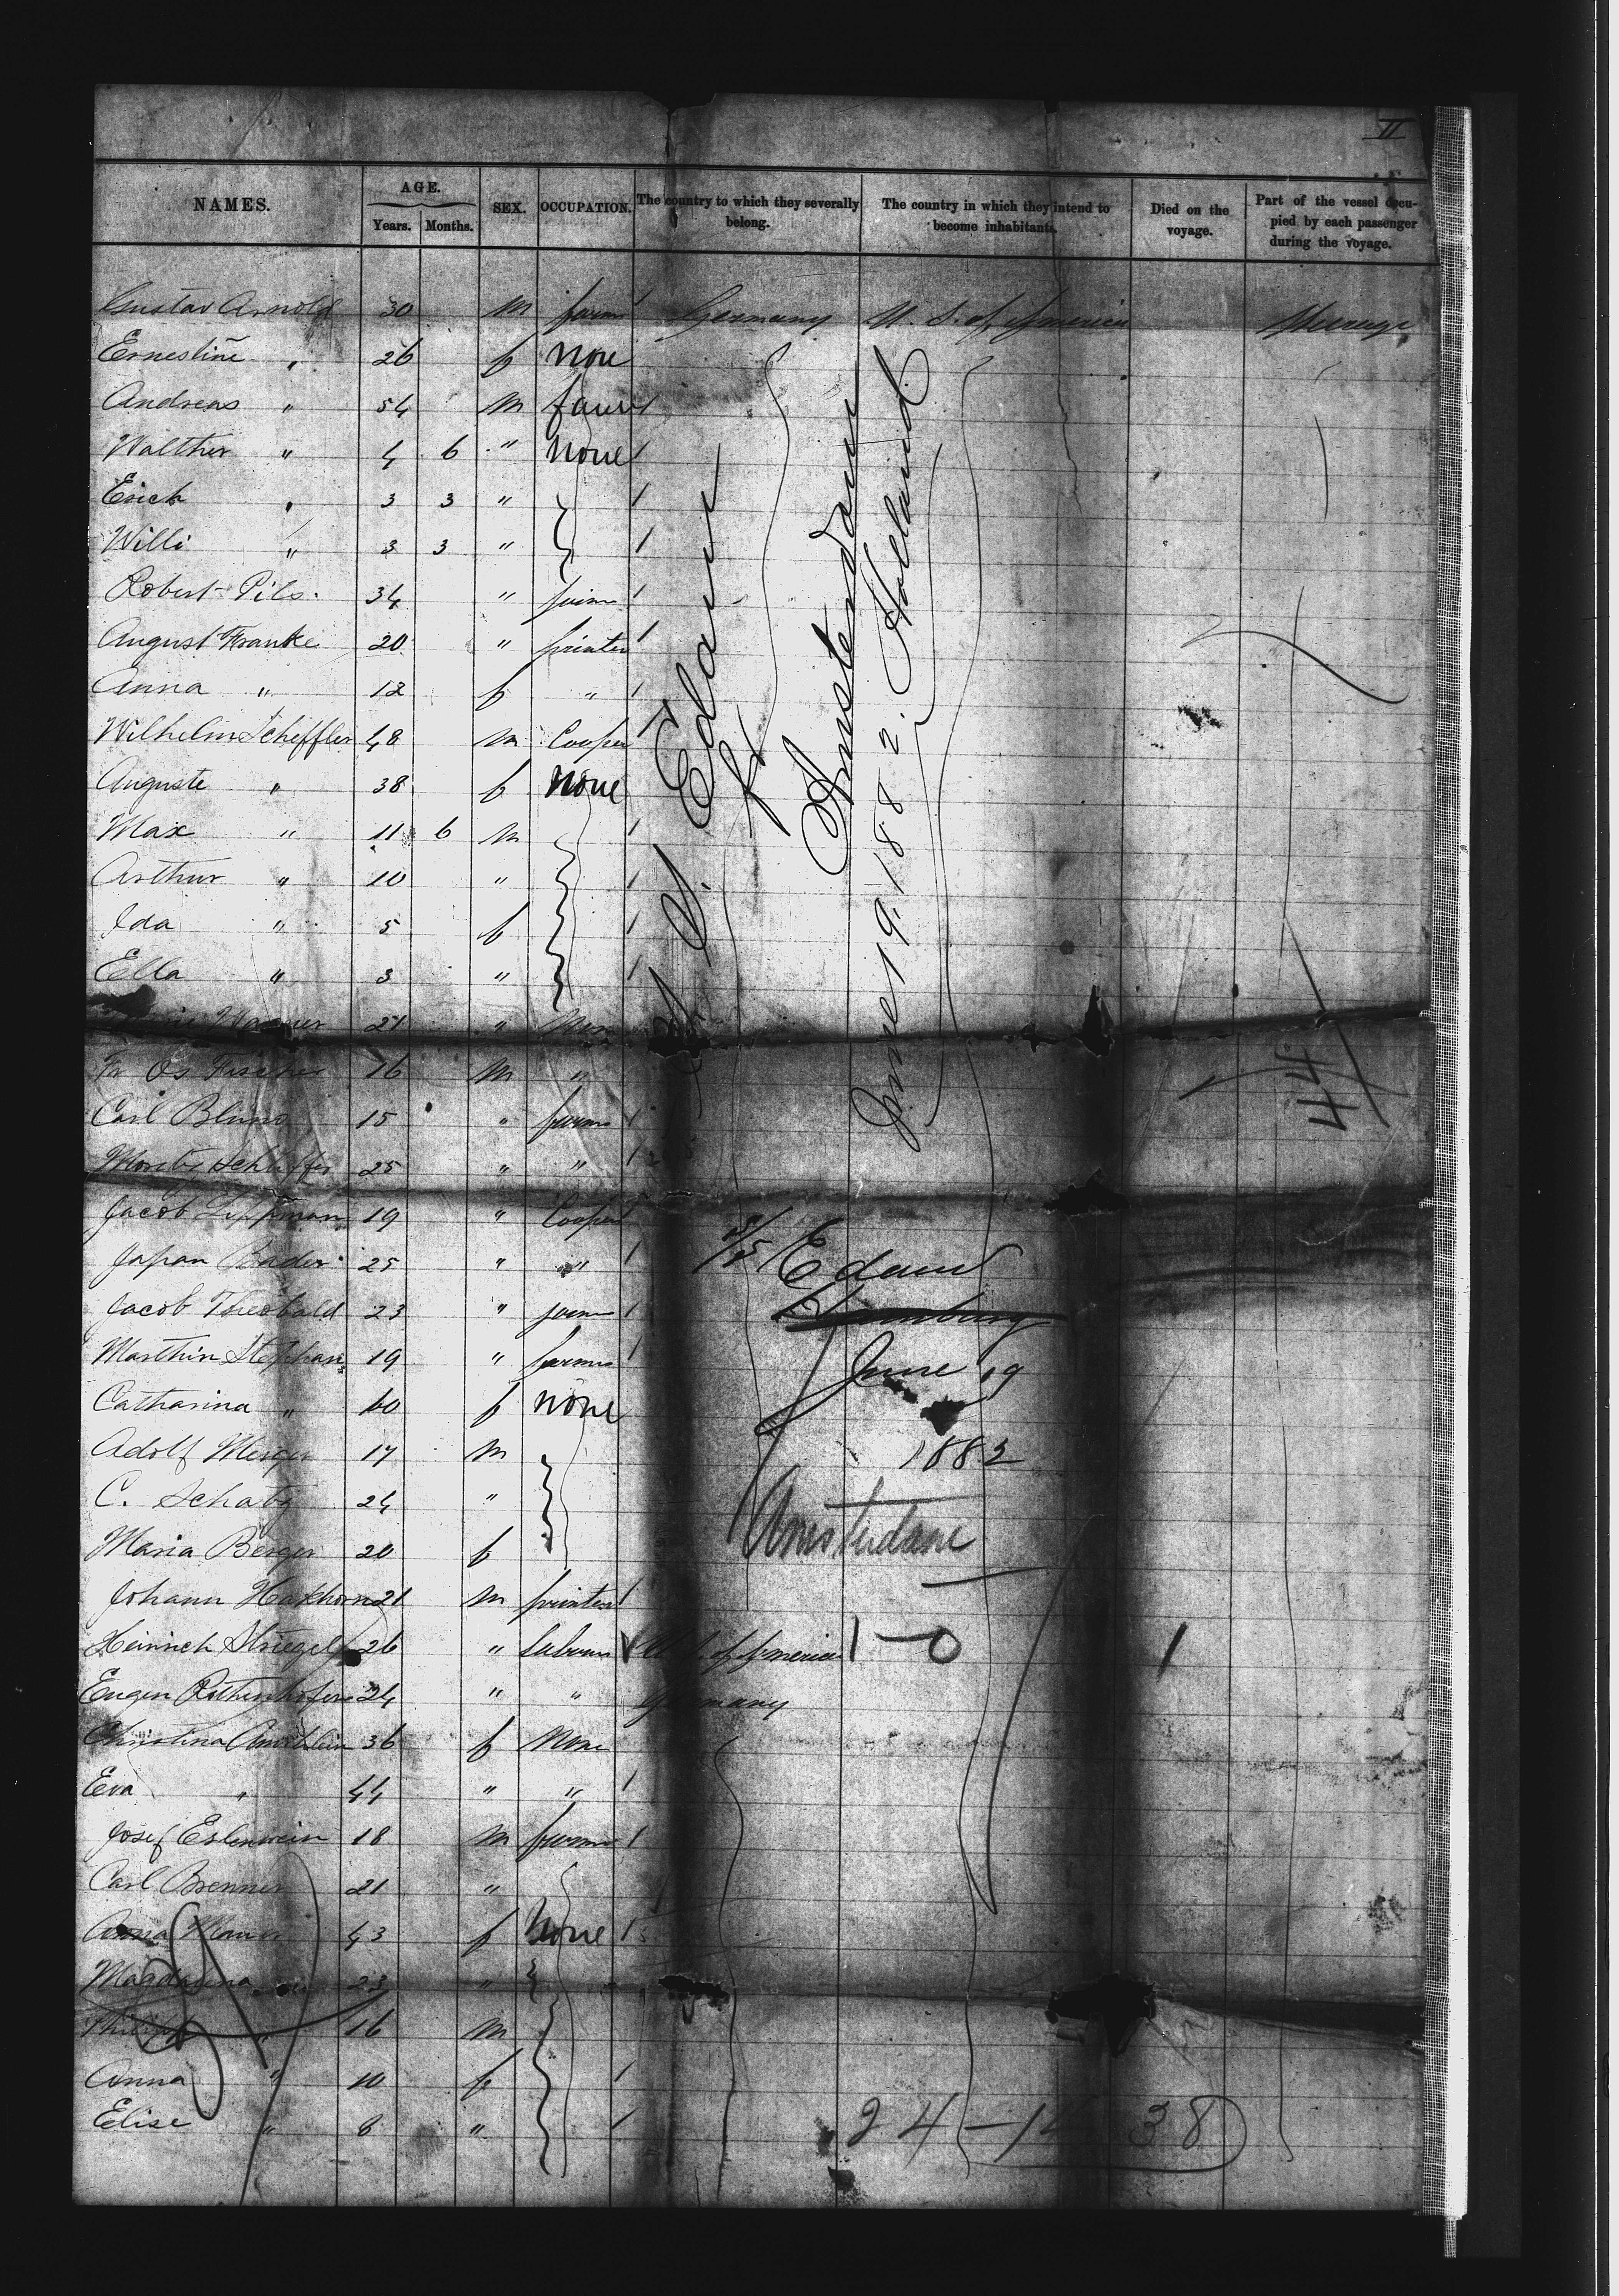 II
NAMES. AGE. Years. Months. SEX. OCCUPATION. The country to which they severally belong. The country in which they intend to become inhabitants. Died on the voyage. Part of the vessel occupied by each passenger during the voyage.
Gustav Arnold 30 m farm 1 Germany U. S. of America Steerage
Ernestine " 26 f none
Andreas " 54 m farm 1
Walther " 4 6 " none 1
Erich " 3 3 " 1
Willi " 3 3 " 1
Robert Pils 34 " farm 1
August Franke 20 " printer 1
Anna " 12 f " 1
Wilhelm Scheffler 48 m Cooper 1
Auguste " 38 f none
Max " 11 6 m 1
Arthur " 10 " 1
Ida " 5 f 1
Ella " 3 " 1
Wagner 21 " None
Fischer 16 m "
Carl Blum 15 " farm 1
25 " " 1
Jacob Lippman 19 " Cooper
Bader 25 " " 1
Jacob Theobald 23 " farm 1
Marthin Stephan 19 " farmer 1
Catharina " 60 f none
Adolf 17 m
C. Schatz 24 "
Maria Berger 20 f
Johann 21 m printer 1
Heinrich Striegel 26 " Labourer U. S. of America 1 – 0 1
Eugen 24 " " Germany
Christina 36 f None
Eva " 44 " " 1
Josef Eslenwein 18 m farmer 1
Carl Brenner 21 "
Anna 43 f None 1
Magdalena " 23 "
16 m
Anna " 10 f 1
Elise " 8 " 1
S. S. Edam
fr
Amsterdam
June 19. 1882. Holland
44
S/S Edam
June 19
1882
Amsterdam
24 – 14 38